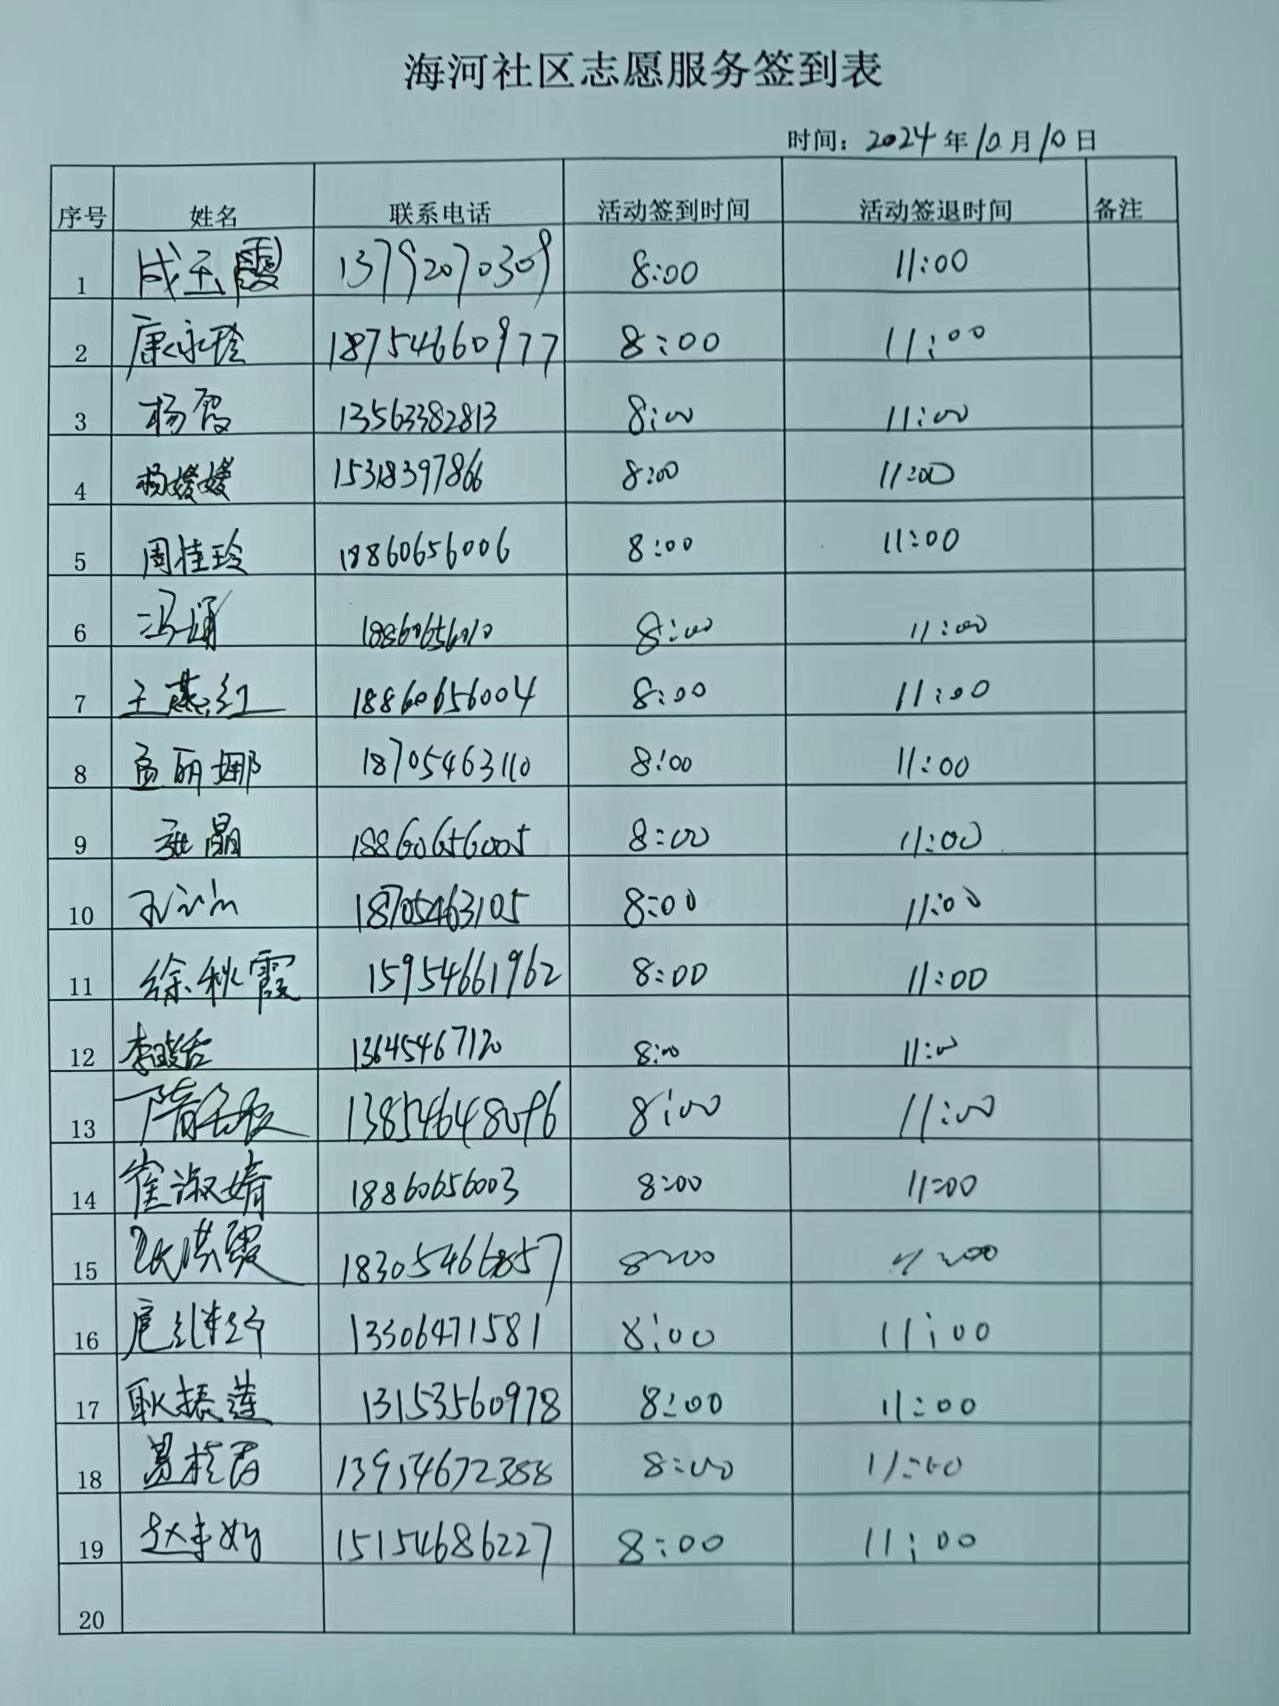 海河社区志愿服务签到表
时间：2024年10月10日
序号 姓名 联系电话 活动签到时间 活动签退时间 备注
1 成玉霞 13792070309 8:00 11:00
2 康永玲 18754660977 8:00 11:00
3 杨霞 13563382813 8:00 11:00
4 杨媛媛 15318397866 8:00 11:00
5 周桂玲 18860656006 8:00 11:00
6 18860656010 8:00 11:00
7 王燕红 18860656004 8:00 11:00
8 孟丽娜 18705463110 8:00 11:00
9 张晶 18860656005 8:00 11:00
10 18705463105 8:00 11:00
11 徐秋霞 15954661962 8:00 11:00
12 13645467120 8:00 11:00
13 13854648096 8:00 11:00
14 崔淑婧 18860656003 8:00 11:00
15 18305466857 8:00 11:00
16 13306471581 8:00 11:00
17 耿振莲 13153560978 8:00 11:00
18 13954672388 8:00 11:00
19 15154686227 8:00 11:00
20